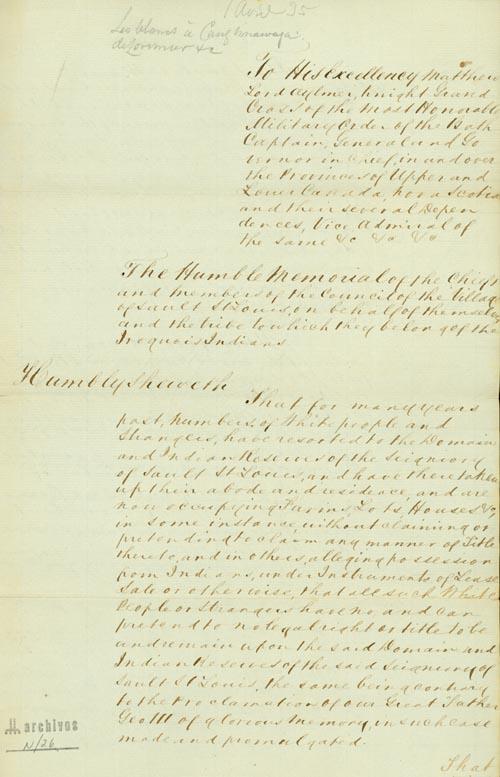 1 Avril 35
Les blancs à Caughnawaga
de Lorimier &c
To His Excellency Matthew
Lord Aylmer, Knight Grand
Cross of the Most Honorable
Military Order of the Bath
Captain, General and Go
vernor in Chief, in and over
the Provinces of Upper and
Lower Canada, Nova Scotia
and their several Depen
dencies, Vice Admiral of
the same &c &c &c
The Humble Memorial of the Chiefs
and Members of the Council of the Village
of Sault St Louis, on behalf of themselves
and the tribe to which they belong of the
Iroquois Indians
Humbly Sheweth
That for many years
past, numbers of White people and
Strangers, have resorted to the Domain
and Indian Reserves of the Seigniory
of Sault St Louis, and have there taken
up their abode and residence, and are
now occupying Farms, Lots, Houses &c,
in some instance, without claiming or
pretending to claim any manner of Title
thereto, and in others, alleging possession
from Indians, under Instruments of Lease
Sale or otherwise, that all such White
People or Strangers have no and can
pretend to no legal right or title to be
and remain upon the said Domain and
Indian Reserves of the said Seigniory of
Sault St Louis, the same being contrary
to the Proclamation of our Great Father
Geo III of glorious Memory, in such case
made and promulgated.
archives
N/26
That